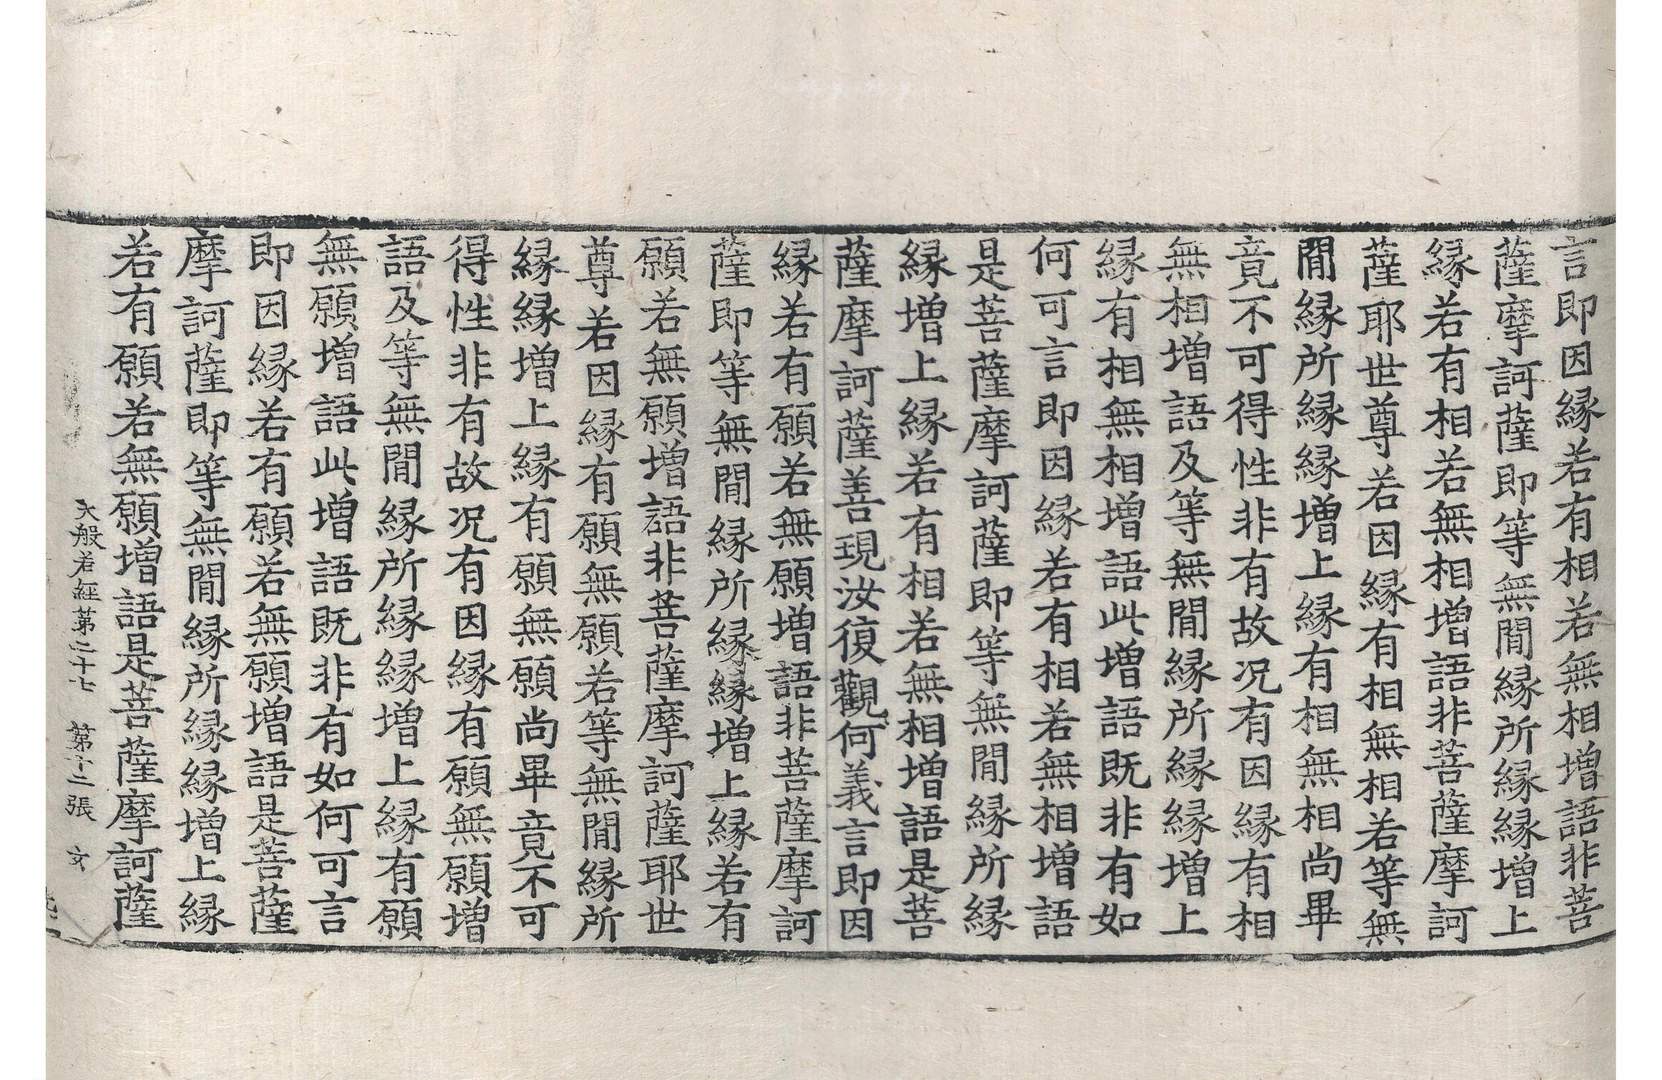 言即因縁若有相若無相增語非菩
薩摩訶薩即等無閒縁所縁縁增上
縁若有相若無相增語非菩薩摩訶
薩耶世尊若因縁有相無相若等無
閒縁所縁縁增上縁有相無相尚畢
竟不可得性非有故况有因縁有相
無相增語及等無閒縁所縁縁增上
縁有相無相增語此增語既非有如
何可言即因縁若有相若無相增語
是菩薩摩訶薩即等無閒縁所縁
縁增上縁若有相若無相增語是菩
薩摩訶薩善現汝復觀何義言即因
縁若有願若無願增語非菩薩摩訶
薩即等無閒縁所縁縁增上縁若有
願若無願增語非菩薩摩訶薩耶世
尊若因縁有願無願若等無閒縁所
縁縁增上縁有願無願尚畢竟不可
得性非有故况有因縁有願無願增
語及等無閒縁所縁縁增上縁有願
無願增語此增語既非有如何可言
即因縁若有願若無願增語是菩薩
摩訶薩即等無閒縁所縁縁增上縁
若有願若無願增語是菩薩摩訶薩
大般若經第二十七 第十二張